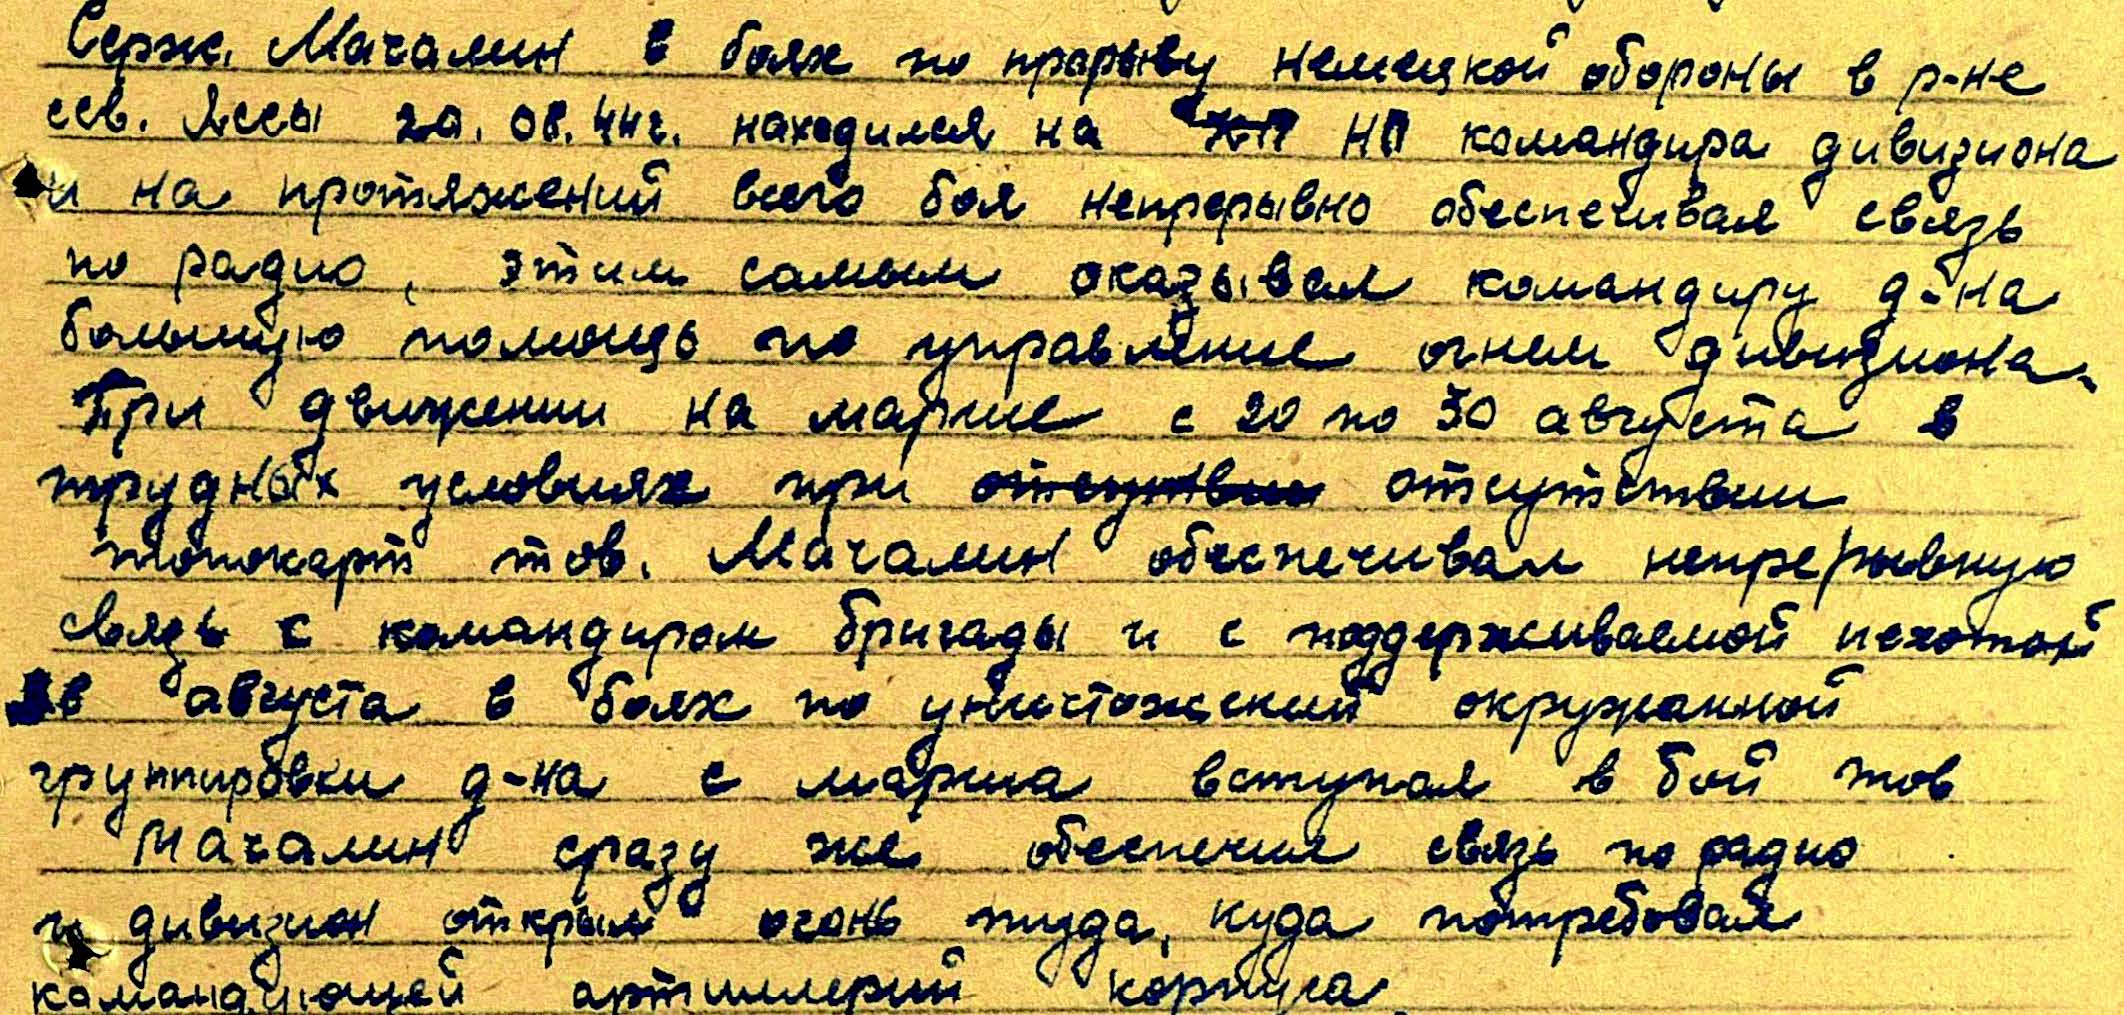 Серж. Мачалин в боях по прорыву немецкой обороны в р-не
сев. Яссы 20.08.44г. находился на КП НП командира дивизиона
и на протяжений всего боя непрерывно обеспечивал связь
по радио, этим самым оказывал командиру д-на
большую помощь по управление огнем дивизиона.
При движении на марше с 20 по 30 августа в
трудных условиях при отсутвии отсутствии
топокарт тов. Мачалин обеспечивал непрерывную
связь с командиром бригады и с поддерживаемой пехотой
в августа в боях по уничтожений окружанной
группировки д-на с марша вступал в бой тов
Мачалин сразу же обеспечил связь по радио
и дивизион открыл огонь туда, куда потребовал
командующей артиллерий корпуса.